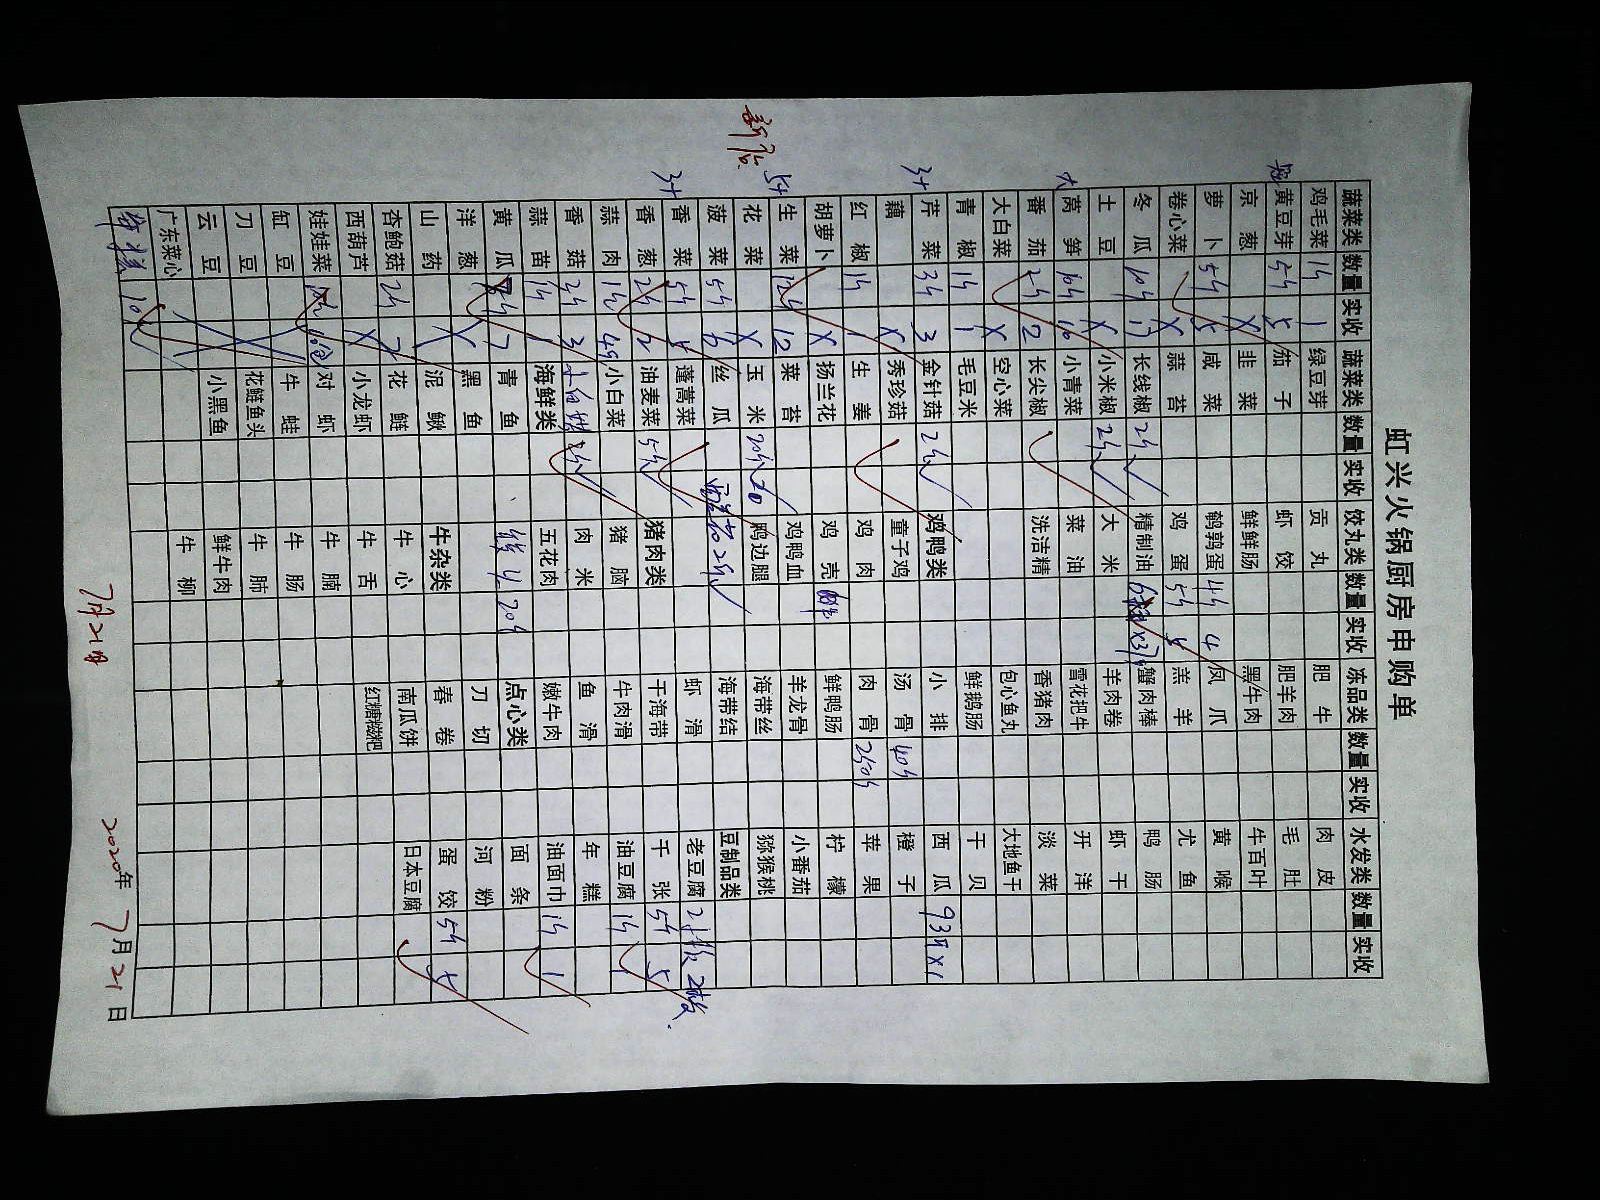 新店
虹兴火锅厨房申购单
蔬菜类 数量 实收 蔬菜类 数量 实收 饺丸类 数量 实收 冻品类 数量 实收 水发类 数量 实收
鸡毛菜 1斤 1 绿豆芽 贡丸 肥牛 肉皮
黄豆芽 5斤 5 茄子 虾饺 肥羊肉 毛肚
京葱 X 韭菜 鲜鲜肠 黑牛肉 牛百叶
萝卜 5斤 5 咸菜 鹌鹑蛋 4斤 4 凤爪 黄喉
卷心菜 X 蒜苔 鸡蛋 5斤 5 羔羊 尤鱼
冬瓜 10斤 长线椒 2斤 精制油 蟹肉棒 鸭肠
土豆 X 小米椒 2斤 大米 羊肉卷 虾干
大
莴笋 10斤 10 小青菜 菜油 雪花把牛 开洋
番茄 2斤 2 长尖椒 洗洁精 香猪肉 淡菜
大白菜 X 空心菜 包心鱼丸 大地鱼干
青椒 1斤 1 毛豆米 鲜鹅肠 干贝
3+
芹菜 3斤 3 金针菇 2斤 鸡鸭类 小排 西瓜 93斤X1
藕 X 秀珍菇 童子鸡 汤骨 40斤 橙子
红椒 1斤 1 生姜 鸡肉 肉骨 250斤 苹果
胡萝卜 X 扬兰花 鸡壳 鲜鸭肠 柠檬
5+
生菜 12斤 12 菜苔 鸡鸭血 羊龙骨 小番茄
花菜 X 玉米 20斤 20 鸭边腿 海带丝 猕猴桃
菠菜 5斤 6 丝瓜 海带结 豆制品类
3+
香菜 5斤 5 蓬蒿菜 虾滑 老豆腐 2板 2板
香葱 2斤 2 油麦菜 5斤 猪肉类 干海带 千张 5斤 5
蒜肉 1斤 小白菜 猪脑 牛肉滑 油豆腐 1斤 1
香菇 3斤 3 肉米 鱼滑 年糕
蒜苗 1斤 1 海鲜类 五花肉 嫩牛肉 油面巾 1斤 1
黄瓜 7 青鱼 20斤 点心类 面条
洋葱 X 黑鱼 刀切 河粉
山药 X 泥鳅 牛杂类 春卷 蛋饺 5斤 5
杏鲍菇 2斤 2 花鲢 牛心 南瓜饼 日本豆腐
西葫芦 X 小龙虾 牛舌 红糖糍粑
娃娃菜 对虾 牛腩
缸豆 牛蛙 牛肠
刀豆 花鲢鱼头 牛肺
云豆 小黑鱼 鲜牛肉
广东菜心 牛柳
10
7月21日 2020年7月21日